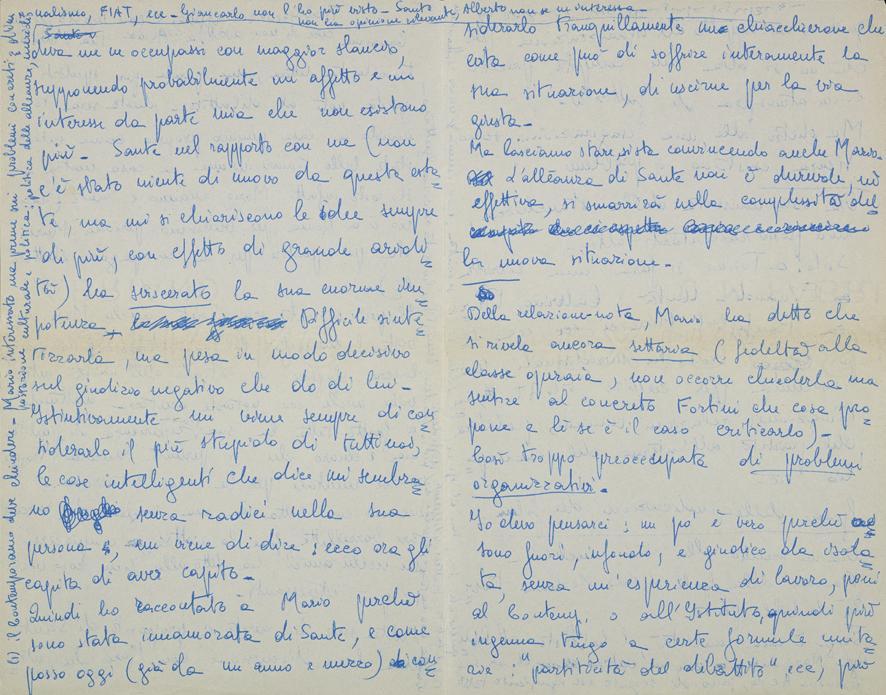 nalismo, FIAT, ecc - Giancarlo non l'ho più visto - Sante, Alberto non se ne interessa -
non ha opinione rilevante,
leva me ne occupassi con maggior slancio,
supponendo probabilmente un affetto e un
interesse da parte mia che non esistono
più - Sante nel rapporto con me (non
c'è stato niente di nuovo da questa esta
te, ma mi si chiariscono le idee sempre
di più, con effetto di grande aridi
tà) ha sviscerato la sua enorme im
potenza - Difficile sinte
tizzarla, ma pesa in modo decisivo
sul giudizio negativo che do di lui -
Istintivamente mi viene sempre di con
siderarlo il più stupido di tutti noi,
le cose intelligenti che dice mi sembra
no senza radici nella sua
persona, mi viene di dire: ecco ora gli
capita di aver capito -
Quindi ho raccontato a Mario perché
sono stata innamorata di Sante, e come
posso oggi (già da un anno e mezzo) con
(1) il Contemporaneo deve chiudere - Mario interessato ma preme sui problemi concreti e
impostazione culturale e politica, politica delle alleanze,
siderarlo tranquillamente un chiacchierone che
evita come può di soffrire interamente la
sua situazione, di uscirne per la via
giusta -
Ma lasciamo stare, si sta convincendo anche Mario
L'alleanza di Sante non è durevole, né
effettiva, si smarrirà nella complessità del
la nuova situazione -
Della relazione-nota, Mario ha detto che
si rivela ancora settaria (fedeltà alla
classe operaia, non occorre chiederla ma
sentire al concreto Fortini che cosa pro
pone e lì se è il caso criticarlo) -
Così troppo preoccupata di problemi
organizzativi -
Io devo pensarci; un po' è vero perché
sono fuori, in fondo, e giudico da isola
ta, senza un'esperienza di lavoro, poni
al Contemp. o all'Istituto, quindi più
ingenua tengo a certe formule unita
rie: "partiticità del dibattito" ecc, più